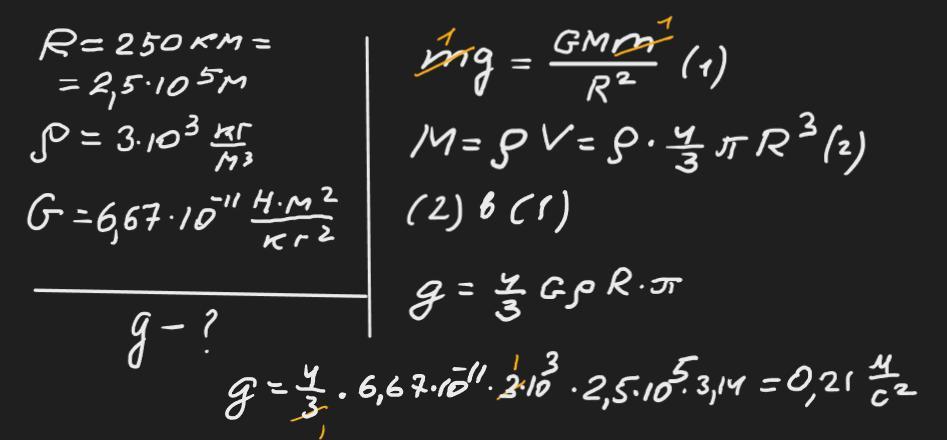 R = 250 км =
= 2,5·10⁵ м
ρ = 3·10³ кг/м³
G = 6,67·10⁻¹¹ Н·м²/кг²
g – ?
mg = GMm/R² (1)
M = ρV = ρ·4/3 πR³ (2)
(2) в (1)
g = 4/3 GρR·π
g = 4/3 · 6,67·10⁻¹¹ · 3·10³ · 2,5·10⁵ · 3,14 = 0,21 м/с²